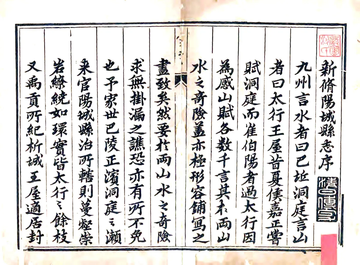 新脩陽城縣志序
九州言水者曰巴近洞庭言山
者曰太行王屋昔夏侯嘉正嘗
賦洞庭而崔伯陽者過太行因
為感山賦各數千言其於兩山
水之奇險蓋亦極形容鋪寫之
盡致矣然要於兩山水之奇險
求無掛漏之譏恐亦有所不免
也予家世巴陵正濱洞庭之瀕
来官陽城縣治所轄則蔓壑崇
岩綠繞如環實皆太行之餘枝
又禹貢所紀析城王屋適居封